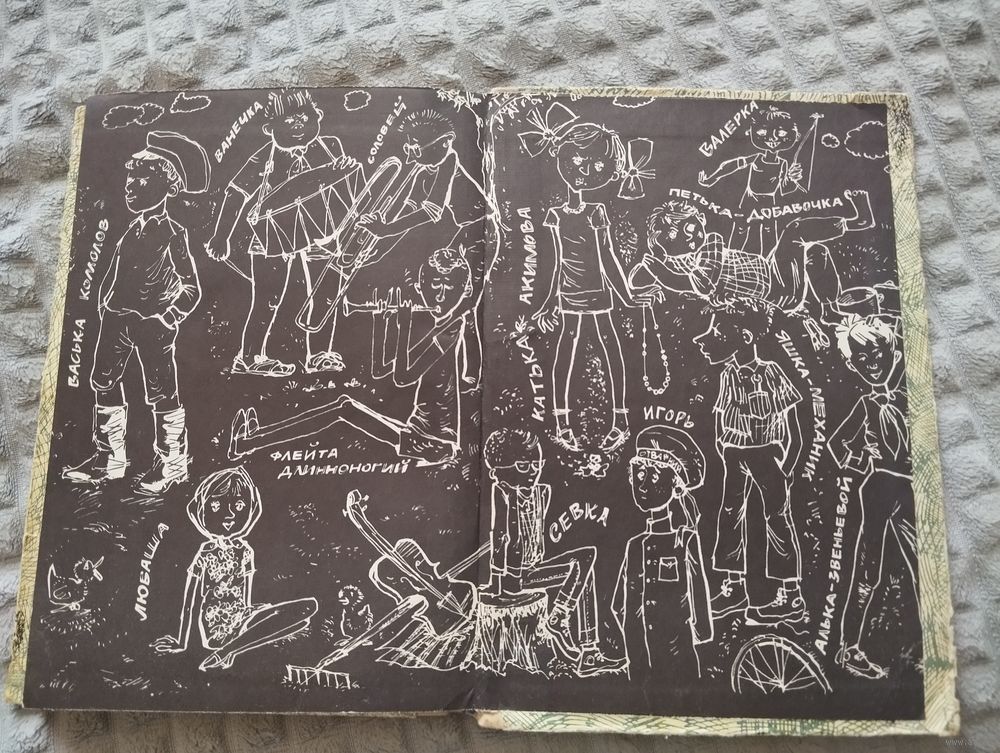 ВАСЬКА КОМОЛОВ
ВАНЕЧКА
СОЛОВЕЙ
ФЛЕЙТА
ДЛИННОНОГИЙ
ЛЮБАША
КАТЬКА АКИМОВА
ВАЛЕРКА
ПЕТЬКА-ДОБАВОЧКА
ЯШКА-МЕХАНИК
ИГОРЬ
СЕВКА
АЛЬКА-ЗВЕНЬЕВОЙ